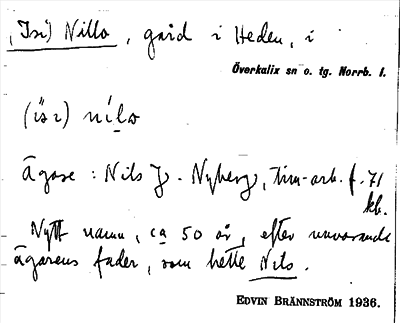 (Isi) Nillo, gård i Heden, i
Överkalix sn o. tg. Norrb. l.
Ägare: Nils J. Nyberg, Tim-arb. f. 71
kb.
Nytt namn, ca 50 år, efter nuvarande
ägarens fader, som hette Nils.
EDVIN BRÄNNSTRÖM 1936.